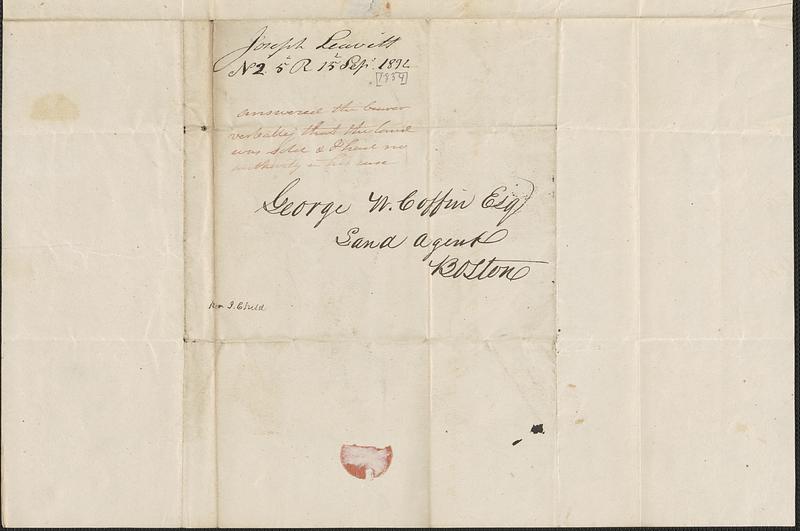 Joseph Leavitt
N 2 5 R 15 Sep. 1834
[1834]
answered the bearer
verbally that the land
was sold & I had no
authority in his case
George W. Coffin Esq
Land Agent
Boston
J. Child